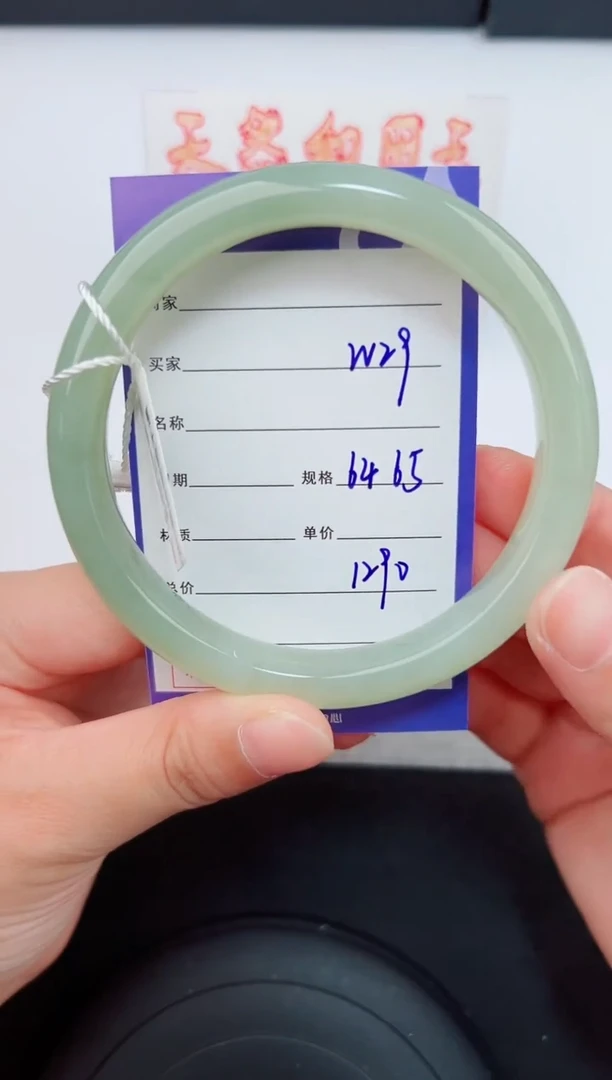 天然和田玉
家
买家 W29
名称
期 规格 64 65
材质 单价
总价 1290
心